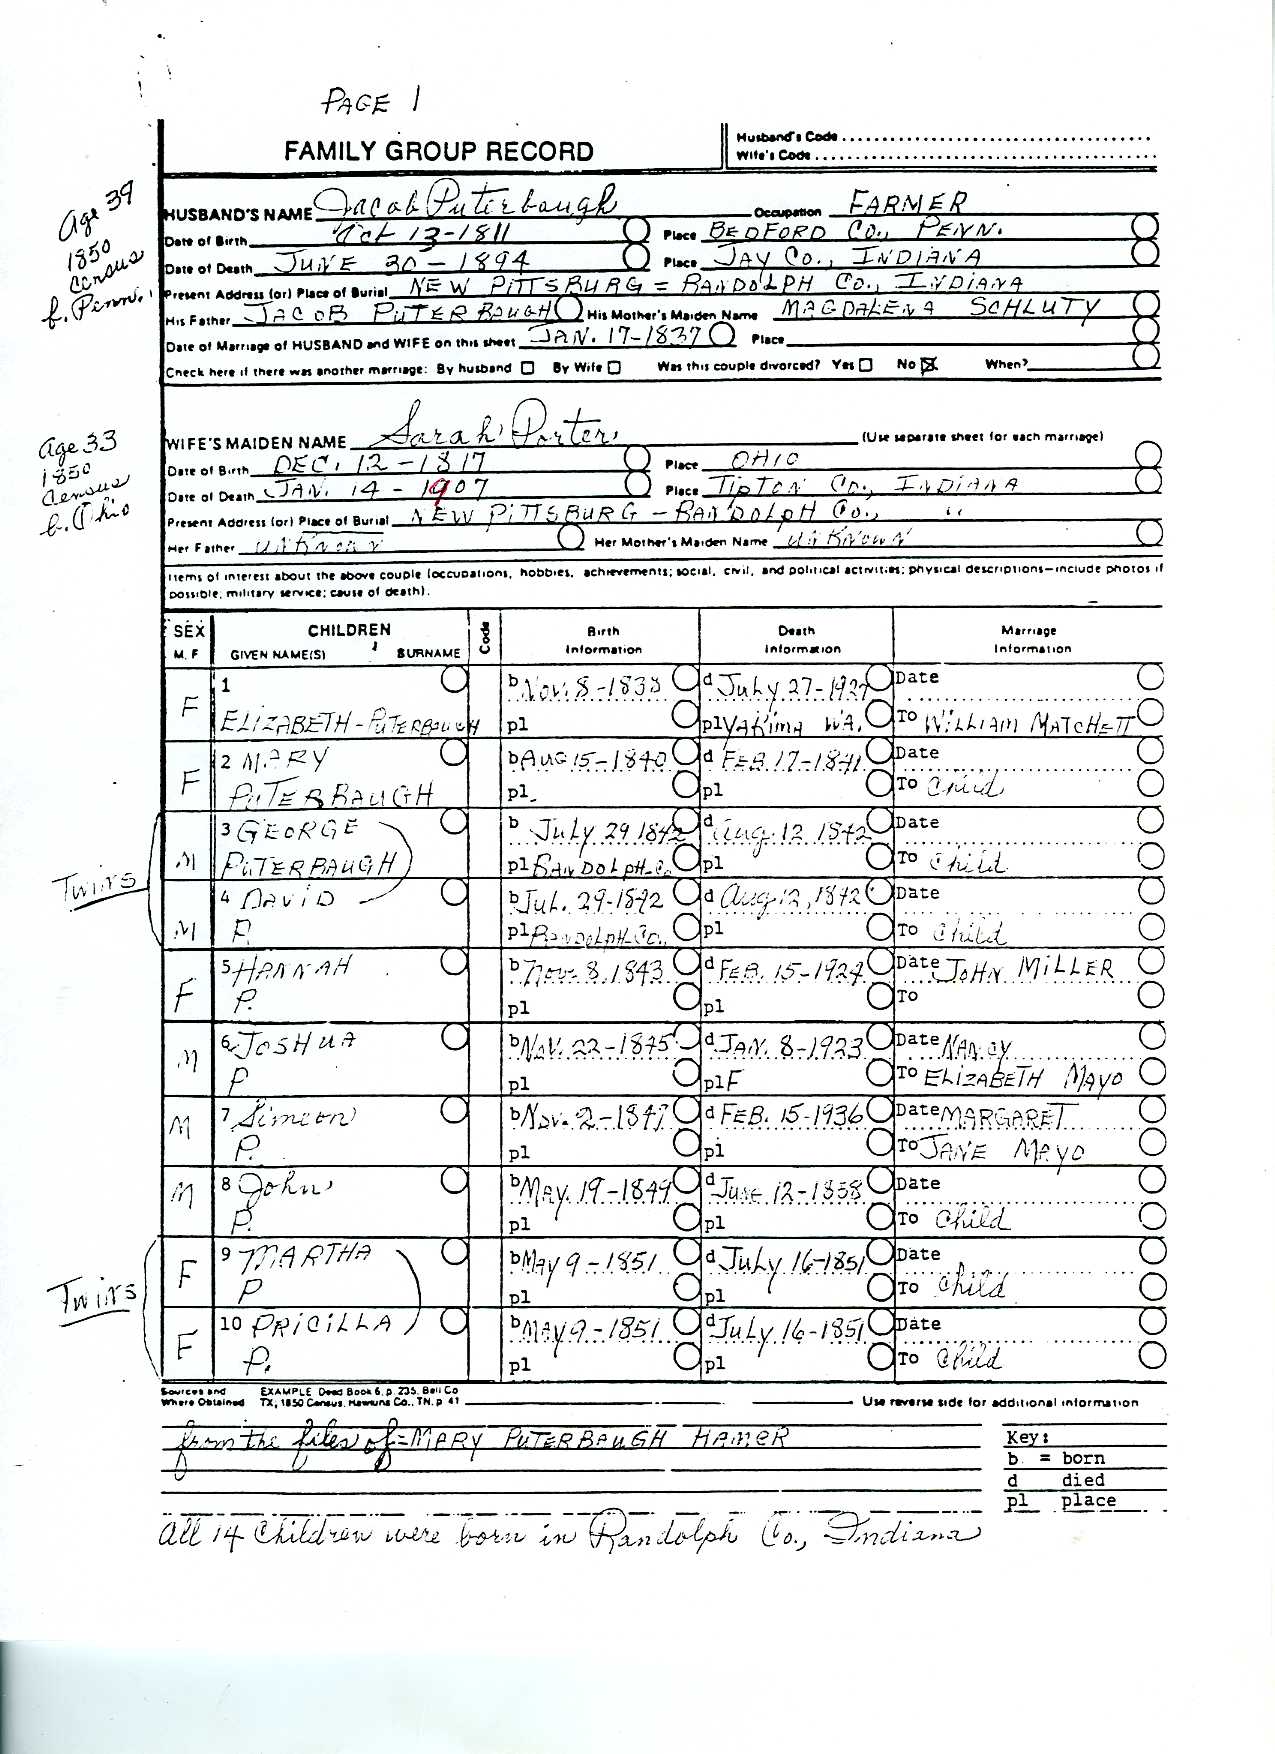 PAGE 1
FAMILY GROUP RECORD
Husband's Code
Wife's Code
Age 39
1850
census
b. Penn.
HUSBAND'S NAME Jacob Puterbaugh Occupation FARMER
Date of Birth Oct 13-1811 Place BEDFORD CO., PENN.
Date of Death JUNE 30-1894 Place JAY CO., INDIANA
Present Address (or) Place of Burial NEW PITTSBURG = RANDOLPH CO., INDIANA
His Father JACOB PUTERBAUGH His Mother's Maiden Name MAGDALENA SCHLUTY
Date of Marriage of HUSBAND and WIFE on this sheet JAN. 17-1837 Place
Check here if there was another marriage: By husband By Wife Was this couple divorced? Yes No When?
Age 33
1850
census
b. Ohio
WIFE'S MAIDEN NAME Sarah Porter (Use separate sheet for each marriage)
Date of Birth DEC. 12-1817 Place OHIO
Date of Death JAN. 14-1907 Place TIPTON CO., INDIANA
Present Address (or) Place of Burial NEW PITTSBURG - RANDOLPH CO., "
Her Father UNKNOWN Her Mother's Maiden Name UNKNOWN
Items of interest about the above couple (occupations, hobbies, achievements; social, civil, and political activities; physical descriptions—include photos if
possible; military service; cause of death).
SEX CHILDREN Code Birth Death Marriage
M. F GIVEN NAME(S) SURNAME Information Information Information
F 1 b Nov. 8-1838 d July 27-1927 Date
ELIZABETH-PUTERBAUGH pl pl YAKIMA WA. To WILLIAM MATCHETT
F 2 MARY b AUG 15-1840 d FEB. 17-1841 Date
PUTERBAUGH pl pl To Child
Twins
M 3 GEORGE b July 29 1842 d Aug. 12 1842 Date
PUTERBAUGH pl RANDOLPH-Co. pl To Child
M 4 DAVID b Jul. 29-1842 d Aug 12, 1842 Date
P. pl RANDOLPH-Co., pl To Child
F 5 HANNAH b Nov. 8, 1843 d FEB. 15-1924 Date JOHN MILLER
P. pl pl To
M 6 JOSHUA b Nov. 22-1845 d JAN. 8-1923 Date NANCY
P pl pl F To ELIZABETH MAYO
M 7 Simeon b Nov. 2-1847 d FEB. 15-1936 Date MARGARET
P. pl pl To JANE MAYO
M 8 John b MAY. 19-1849 d June 12-1858 Date
P. pl pl To Child
Twins
F 9 MARTHA b May 9-1851 d July 16-1851 Date
P pl pl To Child
F 10 PRICILLA b MAY 9-1851. d July 16-1851 Date
P. pl pl To Child
Sources and EXAMPLE Deed Book 6, p. 235, Bell Co
Where Obtained TX, 1850 Census, Hawkins Co., TN, p 41 Use reverse side for additional information
from the files of = MARY PUTERBAUGH HAMER
Key:
b. = born
d died
pl place
All 14 Children were born in Randolph Co., Indiana